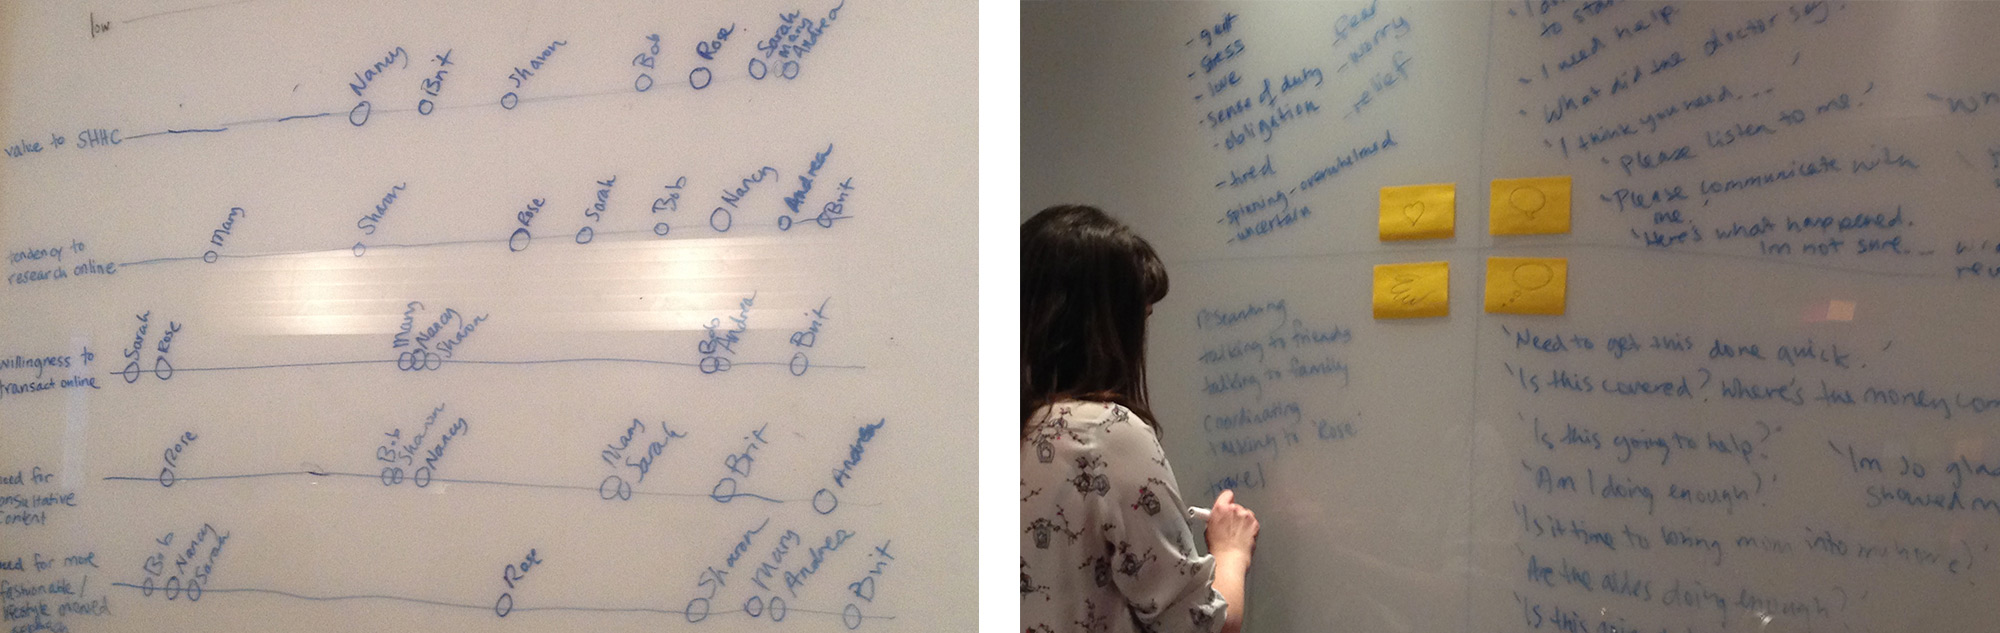 low
Nancy
Brit
Sharon
Bob
Rose
Sarah
Mary
Andrea
value to SHHC
Mary
Sharon
Rose
Sarah
Bob
Nancy
Andrea
Brit
tendency to
research online
Sarah
Rose
Mary
Nancy
Sharon
Bob
Andrea
Brit
willingness to
transact online
Rose
Bob
Sharon
Nancy
Mary
Sarah
Brit
Andrea
for
content
Bob
Nancy
Sarah
Rose
Sharon
Mary
Andrea
Brit
for more
fashionable /
lifestyle
- love
- sense of duty
- obligation
- tired
- spinning - overwhelmed
- uncertain
fear
- worry
- relief
to
"I need help
"What did the doctor say?
"I think you need...
"Please listen to me."
"Please communicate with
me.
"Here's what happened.
I'm not sure...
researching
talking to friends
talking to family
coordinating
talking to 'Rose'
travel
"Need to get this done quick."
"Is this covered? Where's the money
"Is this going to help?"
"Am I doing enough?"
"Is it time to bring mom into my home?"
"Are the aides doing enough?"
"Is this
"I'm so
showed